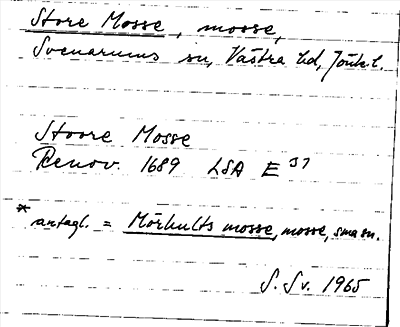 Store Mosse, mosse,
Svenarums sn, Västra hd, Jönk.l.
Stoore Mosse
Renov. 1689 LSA E 37
* antagl. = Mörhults mosse, mosse, sma sn.
S. Sv. 1965